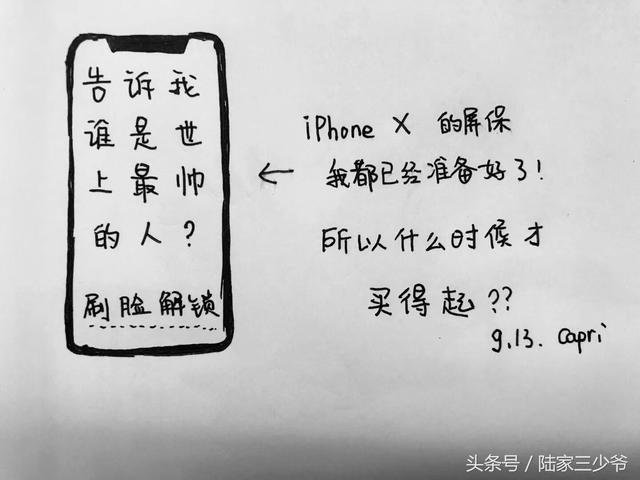 告诉我
谁是世
上最帅
的人？
刷脸解锁
iPhone X 的屏保
我都已经准备好了！
所以什么时候才
买得起？？
9.13. Capri
头条号 / 陆家三少爷